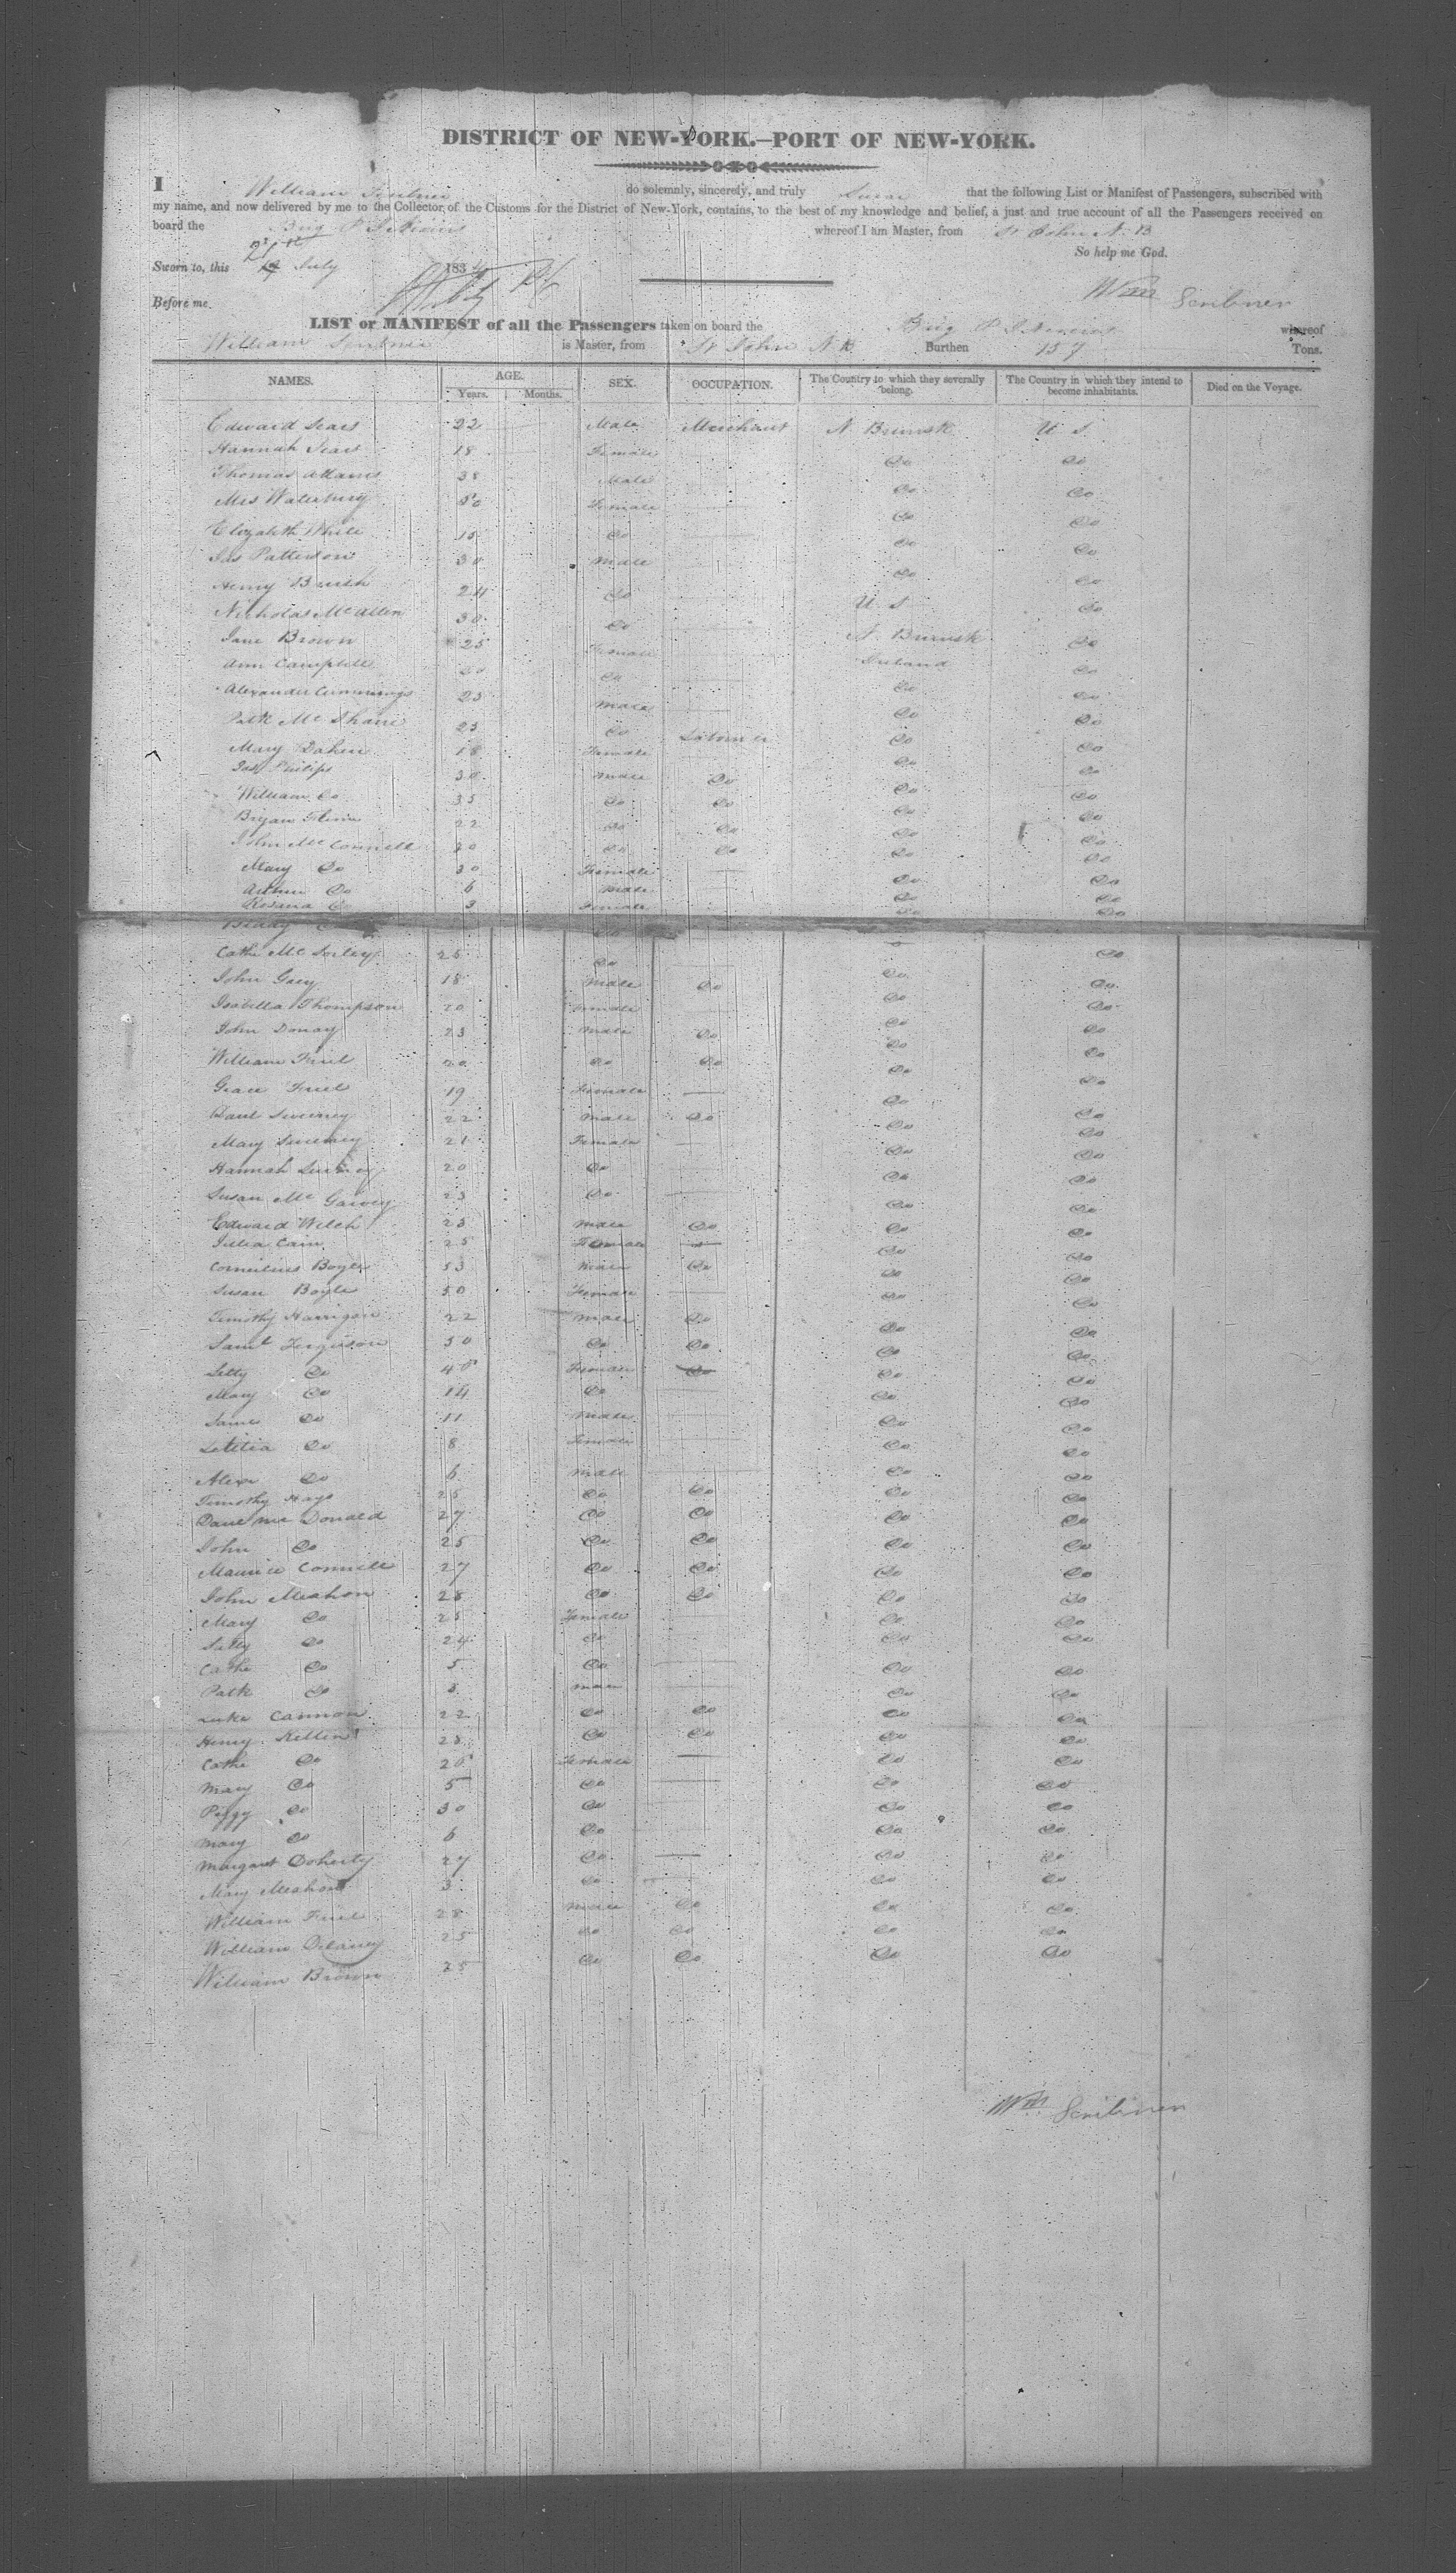 DISTRICT OF NEW-YORK.—PORT OF NEW-YORK.
I William Scribner do solemnly, sincerely, and truly Swear that the following List or Manifest of Passengers, subscribed with
my name, and now delivered by me to the Collector of the Customs for the District of New-York, contains, to the best of my knowledge and belief, a just and true account of all the Passengers received on
board the Brig P whereof I am Master, from St John N. B
So help me God.
Sworn to, this 21st July 183
Before me, Wm Scribner
LIST or MANIFEST of all the Passengers taken on board the Brig P whereof
William Scribner is Master, from St John N B Burthen 157 Tons.
NAMES. AGE. SEX. OCCUPATION. The Country to which they severally belong. The Country in which they intend to become inhabitants. Died on the Voyage.
Years. Months.
Edward Sears 22 Male Merchant N. Brunsk U S
Hannah Sears 18 Female Do Do
Thomas Adams 35 Male Do Do
Mrs Waterbury 50 Female Do Do
Elizabeth White 15 Do Do Do
Jas Patterson 30 Male Do Do
Henry Brush 24 Do U S Do
Nicholas McAllen 30 Do N. Brunsk Do
Jane Brown 25 Female Ireland Do
Ann Campbell 20 Do Do Do
Alexander Cummings 25 Male Do Do
Patk McShane 25 Do Labourer Do Do
Mary Dahen 18 Female Do Do
Jas Philips 30 Male Do Do Do
William Do 35 Do Do Do Do
Bryan 22 Do Do Do Do
John McConnell 30 Do Do Do Do
Mary Do 30 Female Do Do
Arthur Do 6 Male Do Do
Rosana Do 3 Female Do Do
Do
Cathe McSorley 25 Do Do
John Grey 18 Male Do Do Do
Isabella Thompson 20 Female Do Do
John Donay 23 Male Do Do Do
William Friel 20 Do Do Do Do
Grace Friel 19 Female Do Do
Danl Sweeney 22 Male Do Do Do
Mary Sweeney 21 Female Do Do
Hannah 20 Do Do Do
Susan McGarvey 23 Do Do Do
Edward Welch 23 Male Do Do Do
Julia Cain 25 Female Do Do
Cornelius Boyle 53 Male Do Do Do
Susan Boyle 50 Female Do Do
Timothy Harrigan 22 Male Do Do Do
Saml Ferguson 50 Do Do Do Do
Letty Do 45 Female Do Do Do
Mary Do 14 Do Do Do
James Do 11 Male Do Do
Letitia Do 8 Female Do Do
Alexr Do 6 Male Do Do
Timothy Hays 25 Do Do Do Do
Danl McDonald 27 Do Do Do Do
John Do 25 Do Do Do Do
Maurice Connell 27 Do Do Do Do
John Meahon 28 Do Do Do Do
Mary Do 25 Female Do Do
Sally Do 24 Do Do Do
Cathe Do 5 Do Do Do
Patk Do Male Do Do
Luke Cannon 22 Do Do Do Do
Henry 28 Do Do Do Do
Cathe Do 26 Female Do Do
Mary Do 5 Do Do Do
Peggy Do 30 Do Do Do
Mary Do 6 Do Do Do
Margaret Doherty 27 Do Do Do
Mary Meahon 3 Do Do Do
William Friel 28 Male Do Do Do
William Delaney 25 Do Do Do Do
William Brown 25 Do Do Do Do
Wm Scribner